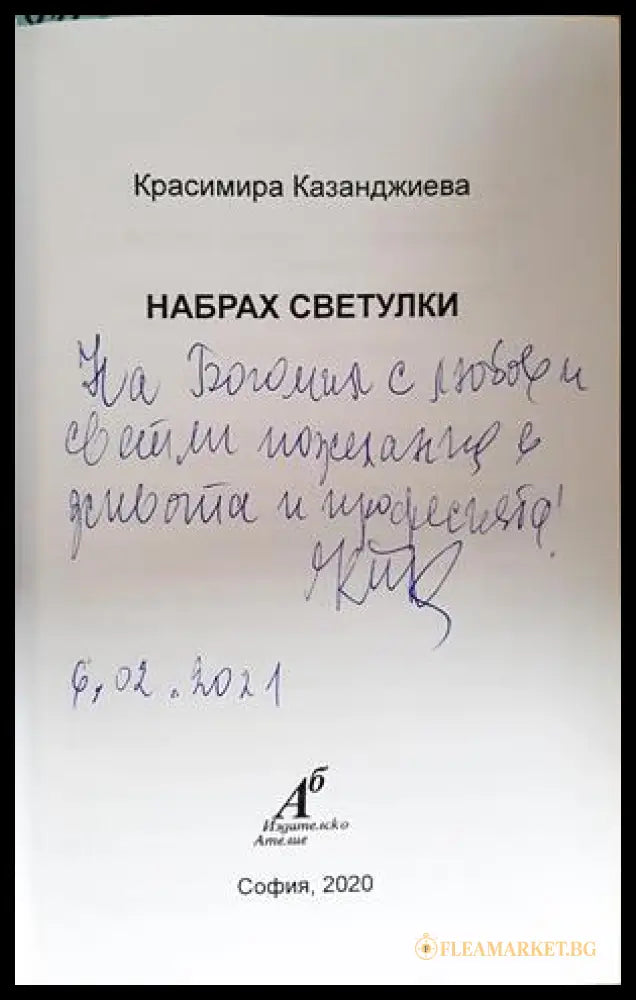 Красимира Казанджиева
НАБРАХ СВЕТУЛКИ
На Богомил с любов и
светли пожелания в
живота и професията!
6.02.2021
Аб
Издателско
Ателие
София, 2020
FLEAMARKET.BG